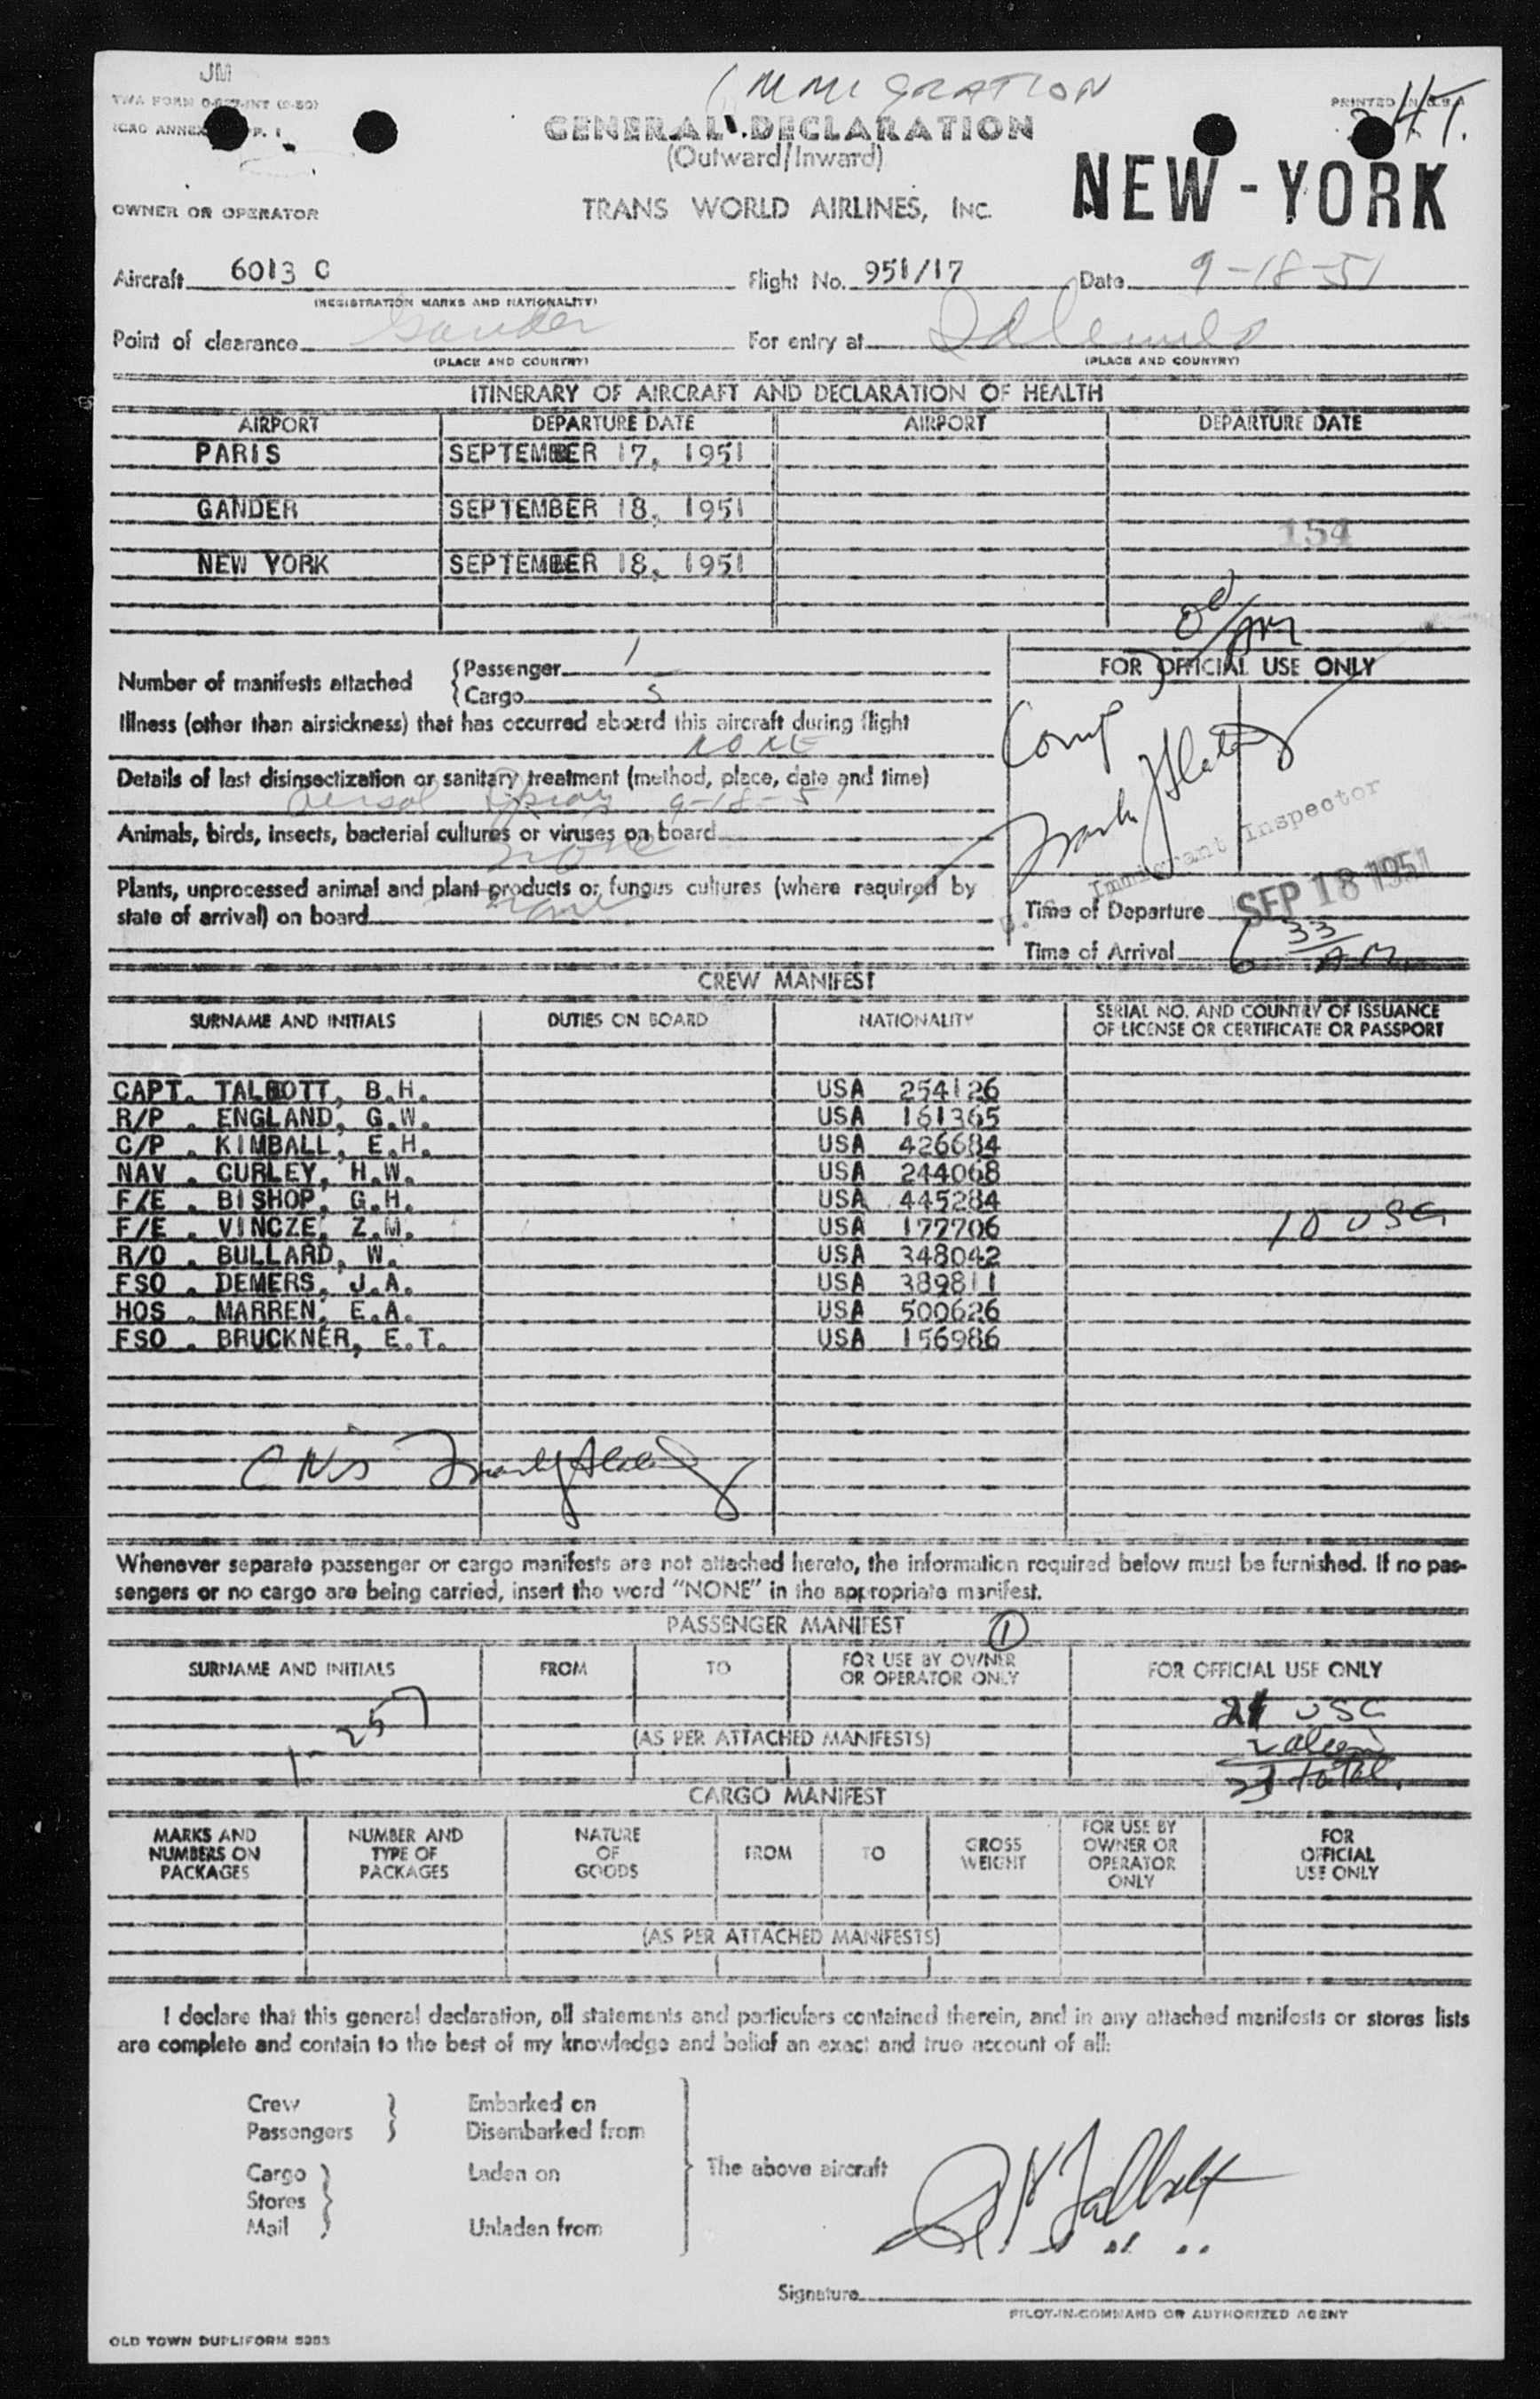 JM
IMMIGRATION
TWA FORM 0-627-INT (9-50)
PRINTED IN U.S.A.
ICAO ANNEX P. 1
GENERAL DECLARATION
(Outward/Inward)
NEW-YORK
OWNER OR OPERATOR
TRANS WORLD AIRLINES, INC.
Aircraft 6013 C Flight No. 951/17 Date 9-18-51
(REGISTRATION MARKS AND NATIONALITY)
Point of clearance Gander For entry at Idlewild
(PLACE AND COUNTRY) (PLACE AND COUNTRY)
ITINERARY OF AIRCRAFT AND DECLARATION OF HEALTH
AIRPORT DEPARTURE DATE AIRPORT DEPARTURE DATE
PARIS SEPTEMBER 17, 1951
GANDER SEPTEMBER 18, 1951
154
NEW YORK SEPTEMBER 18, 1951
Number of manifests attached
(Passenger 1
(Cargo 5
FOR OFFICIAL USE ONLY
Illness (other than airsickness) that has occurred aboard this aircraft during flight
NONE
Details of last disinsectization or sanitary treatment (method, place, date and time)
Aersol Spray 9-18-51
Animals, birds, insects, bacterial cultures or viruses on board
none
Plants, unprocessed animal and plant products or fungus cultures (where required by
state of arrival) on board none
Comp
Immigrant Inspector
SEP 18 1951
Time of Departure
Time of Arrival 6 33 AM
CREW MANIFEST
SURNAME AND INITIALS DUTIES ON BOARD NATIONALITY SERIAL NO. AND COUNTRY OF ISSUANCE
OF LICENSE OR CERTIFICATE OR PASSPORT
CAPT. TALBOTT, B.H. USA 254126
R/P . ENGLAND, G.W. USA 161365
C/P . KIMBALL, E.H. USA 426684
NAV . CURLEY, H.W. USA 244068
F/E . BISHOP, G.H. USA 445284
F/E . VINCZE, Z.M. USA 177706 10 USC
R/O . BULLARD, W. USA 348042
FSO . DEMERS, J.A. USA 389811
HOS . MARREN, E.A. USA 500626
FSO . BRUCKNER, E.T. USA 156986
Whenever separate passenger or cargo manifests are not attached hereto, the information required below must be furnished. If no pas-
sengers or no cargo are being carried, insert the word "NONE" in the appropriate manifest.
PASSENGER MANIFEST 1
SURNAME AND INITIALS FROM TO FOR USE BY OWNER
OR OPERATOR ONLY FOR OFFICIAL USE ONLY
1-257
21 USC
(AS PER ATTACHED MANIFESTS)
2 alien
total
CARGO MANIFEST
MARKS AND
NUMBERS ON
PACKAGES
NUMBER AND
TYPE OF
PACKAGES
NATURE
OF
GOODS
FROM
TO
GROSS
WEIGHT
FOR USE BY
OWNER OR
OPERATOR
ONLY
FOR
OFFICIAL
USE ONLY
(AS PER ATTACHED MANIFESTS)
I declare that this general declaration, all statements and particulars contained therein, and in any attached manifests or stores lists
are complete and contain to the best of my knowledge and belief an exact and true account of all:
Crew Embarked on
Passengers Disembarked from
Cargo Laden on
Stores
Mail Unladen from
The above aircraft
B H Talbott
Signature
PILOT-IN-COMMAND OR AUTHORIZED AGENT
OLD TOWN DUPLIFORM 5353